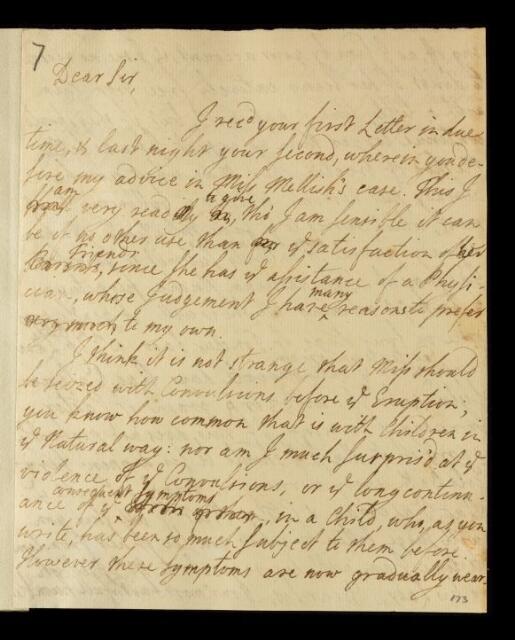 7
Dear Sir,
I recd your first Letter in due
time, & last night your second, wherein you de-
sire my advice in Miss Mellish's case. This I
am very ready to give, tho' I am sensible it can
be of no other use than for ye satisfaction of her
Friends, since she has ye assistance of a Physi-
cian, whose Judgement I have many reasons to prefer
very much to my own.
I think it is not strange that Miss should
be seized with Convulsions before ye Eruption;
you know how common that is with Children in
ye Natural way: nor am I much surpris'd at ye
violence of ye Convulsions, or ye long continu-
ance of ye consequent symptoms, in a Child, who, as you
write, has been so much subject to them before.
However these symptoms are now gradually wear
173